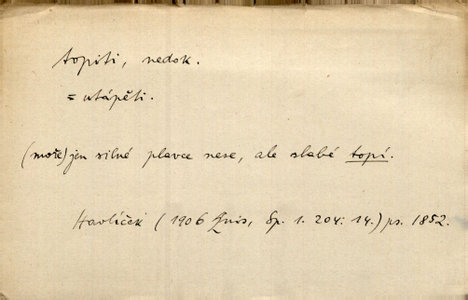 topiti, nedok.
= utápěti.
(moře) jen silné plavce nese, ale slabé topí.
Havlíček (1906 Quis, Sp. 1. 204: 14.) ps. 1852.